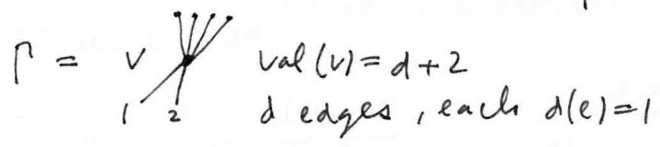 Γ = v val(v) = d+2
1 2 d edges, each d(e)=1